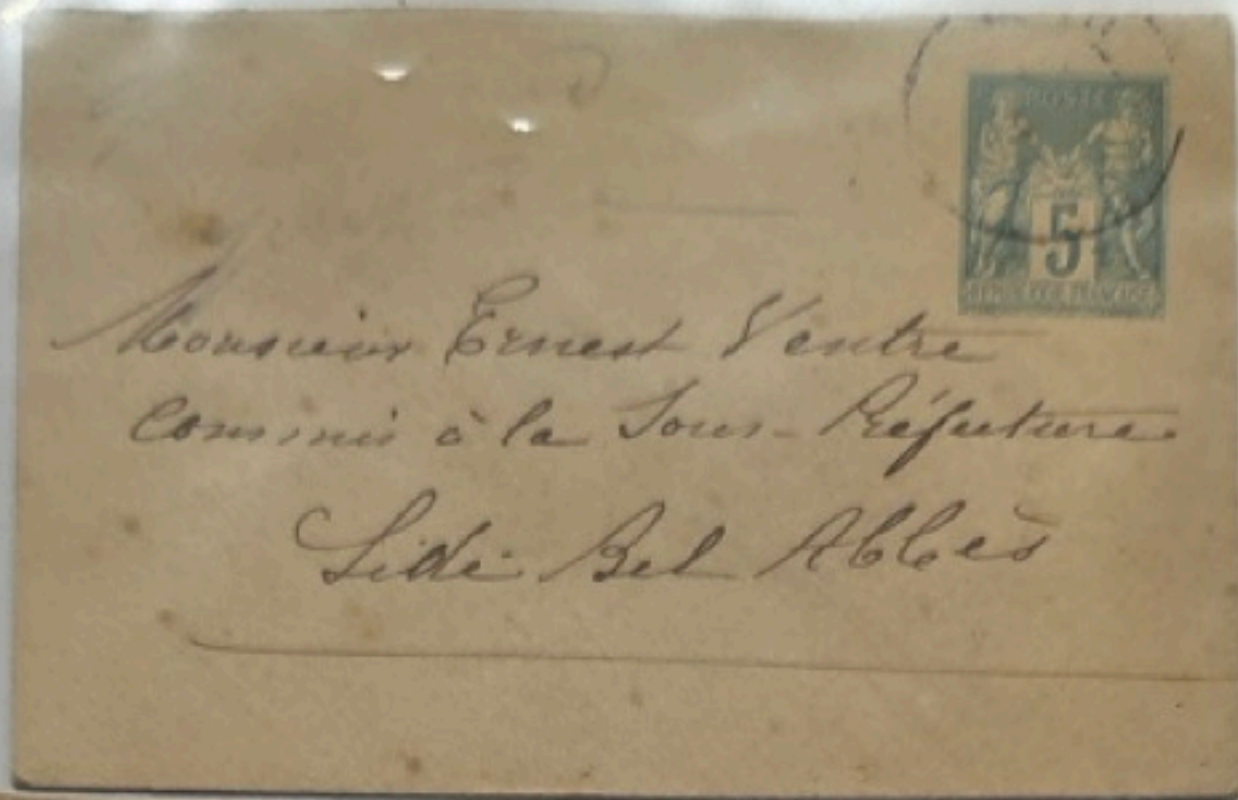 POSTE
5
REPUBLIQUE FRANÇAISE
Monsieur Ernest Ventre
Commis à la Sous-Préfecture
Sidi Bel Abbès